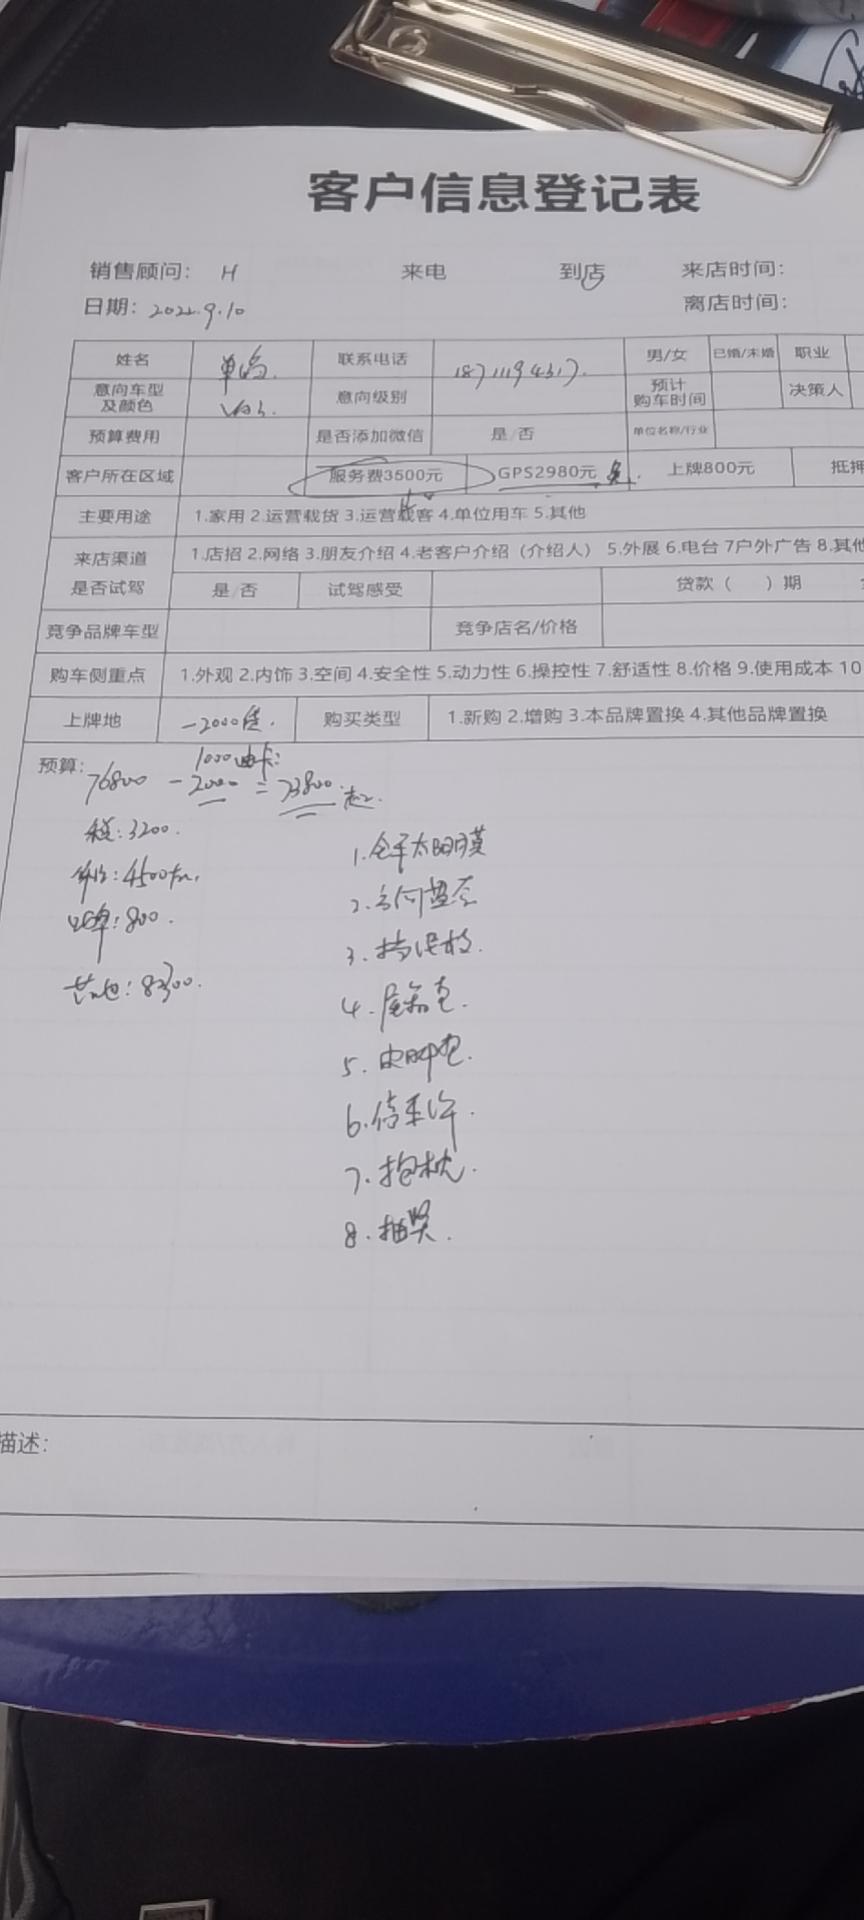 客户信息登记表
销售顾问: H 来电 到店 来店时间:
日期: 2022.9.10 离店时间:
姓名 单 联系电话 男/女 已婚/未婚 职业
意向车型及颜色 V03. 意向级别 预计购车时间 决策人
预算费用 是否添加微信 是/否 单位名称/行业
客户所在区域 服务费3500元 GPS2980元 免. 上牌800元 抵押
主要用途 1.家用 2.运营载货 3.运营载客 4.单位用车 5.其他
来店渠道 1.店招 2.网络 3.朋友介绍 4.老客户介绍（介绍人） 5.外展 6.电台 7户外广告 8.其他
是否试驾 是/否 试驾感受 贷款（ ）期
竞争品牌车型 竞争店名/价格
购车侧重点 1.外观 2.内饰 3.空间 4.安全性 5.动力性 6.操控性 7.舒适性 8.价格 9.使用成本 10
上牌地 -2000 购买类型 1.新购 2.增购 3.本品牌置换 4.其他品牌置换
预算: 1000油卡.
76800 - 2000 = 73800.
税: 3200.
保险: 4500
上牌: 800.
落地: 82300.
1.全车太阳膜
2.方向盘套
3.挡泥板.
4.尾箱垫.
5.皮脚垫.
6.停车牌.
7.抱枕.
8.抽奖.
描述: